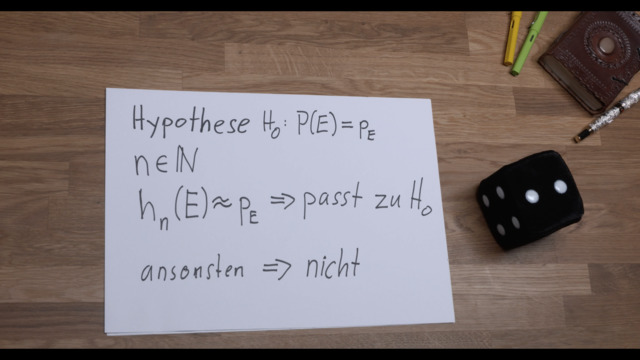 Hypothese H₀: P(E) = p_E
n ∈ ℕ
hₙ(E) ≈ p_E ⇒ passt zu H₀
ansonsten ⇒ nicht